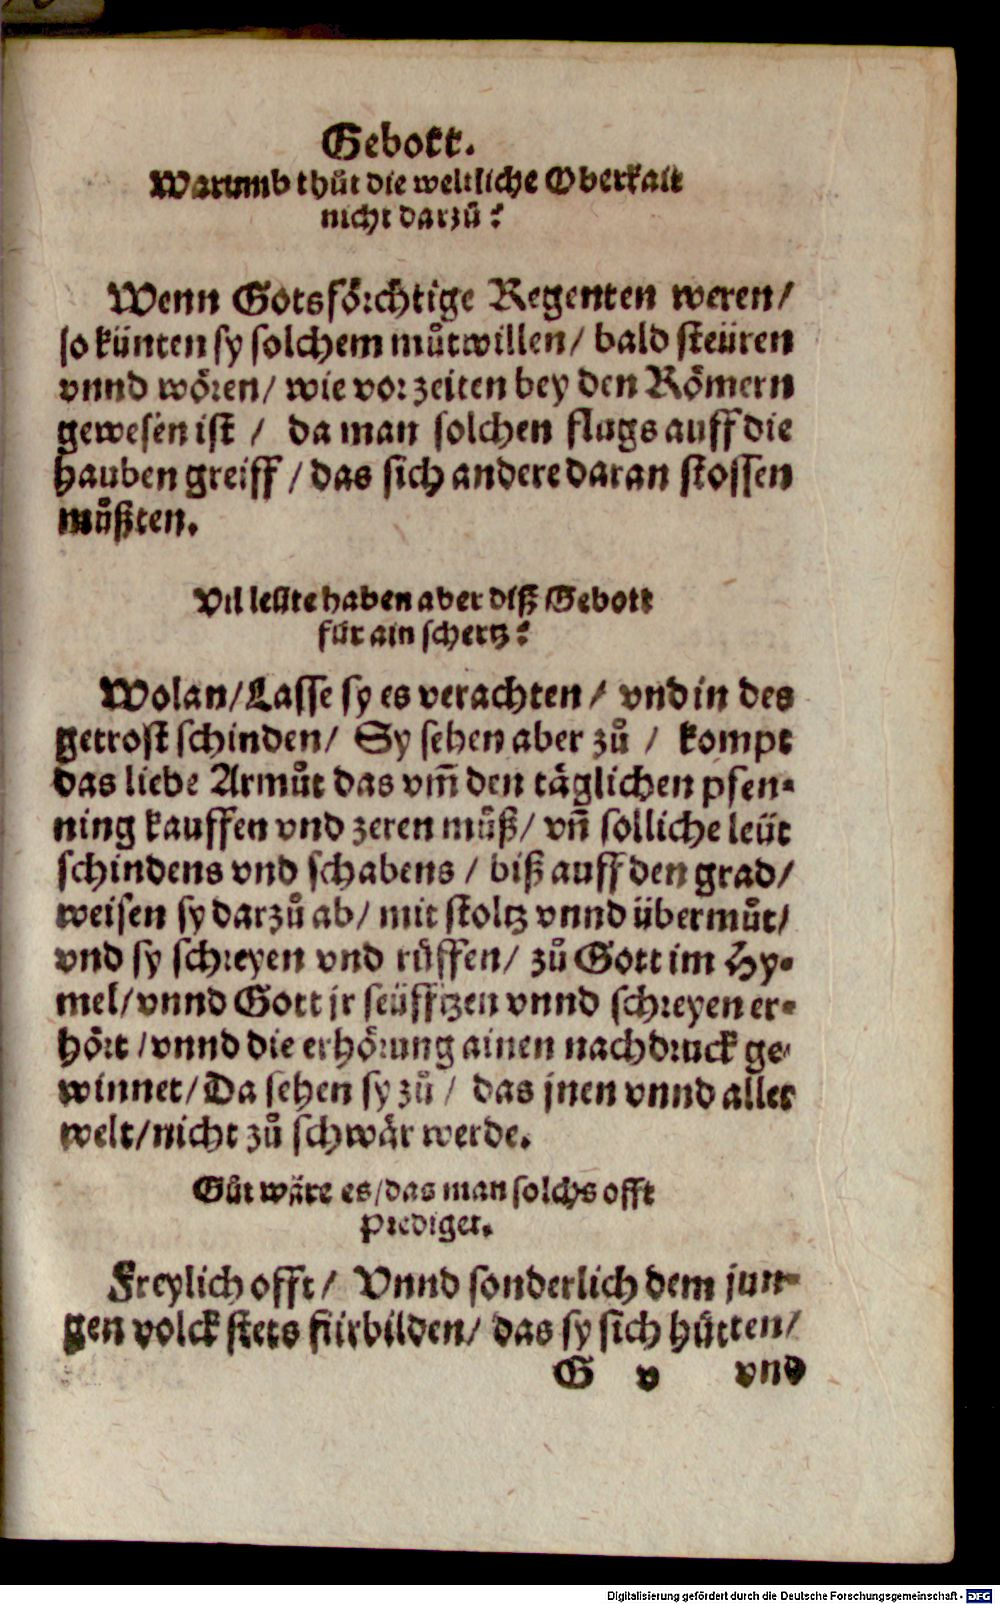 Gebott.
Warumb thůt die weltliche Oberkait
nicht darzů?
Wenn Gotsförchtige Regenten weren/
so künten sy solchem můtwillen/ bald steüren
vnnd wören/ wie vor zeiten bey den Römern
gewesen ist / da man solchen flugs auff die
hauben greiff / das sich andere daran stossen
můßten.
Vil leüte haben aber diß Gebott
für ain schertz?
Wolan/ Lasse sy es verachten / vnd in des
getrost schinden/ Sy sehen aber zů / kompt
das liebe Armůt das vm̃ den täglichen pfen-
ning kauffen vnd zeren můß/ vñ solliche leüt
schindens vnd schabens / biß auff den grad/
weisen sy darzů ab/ mit stoltz vnnd übermůt/
vnd sy schreyen vnd rüffen/ zů Gott im Hy-
mel/ vnnd Gott jr seüffitzen vnnd schreyen er-
hört / vnnd die erhörung ainen nachdruck ge-
winnet/ Da sehen sy zů / das jnen vnnd aller
welt/ nicht zů schwär werde.
Gůt wäre es/ das man solchs offt
prediget.
Freylich offt/ Vnnd sonderlich dem jun-
gen volck stets fürbilden/ das sy sich hütten/
G v vnd
Digitalisierung gefördert durch die Deutsche Forschungsgemeinschaft - DFG